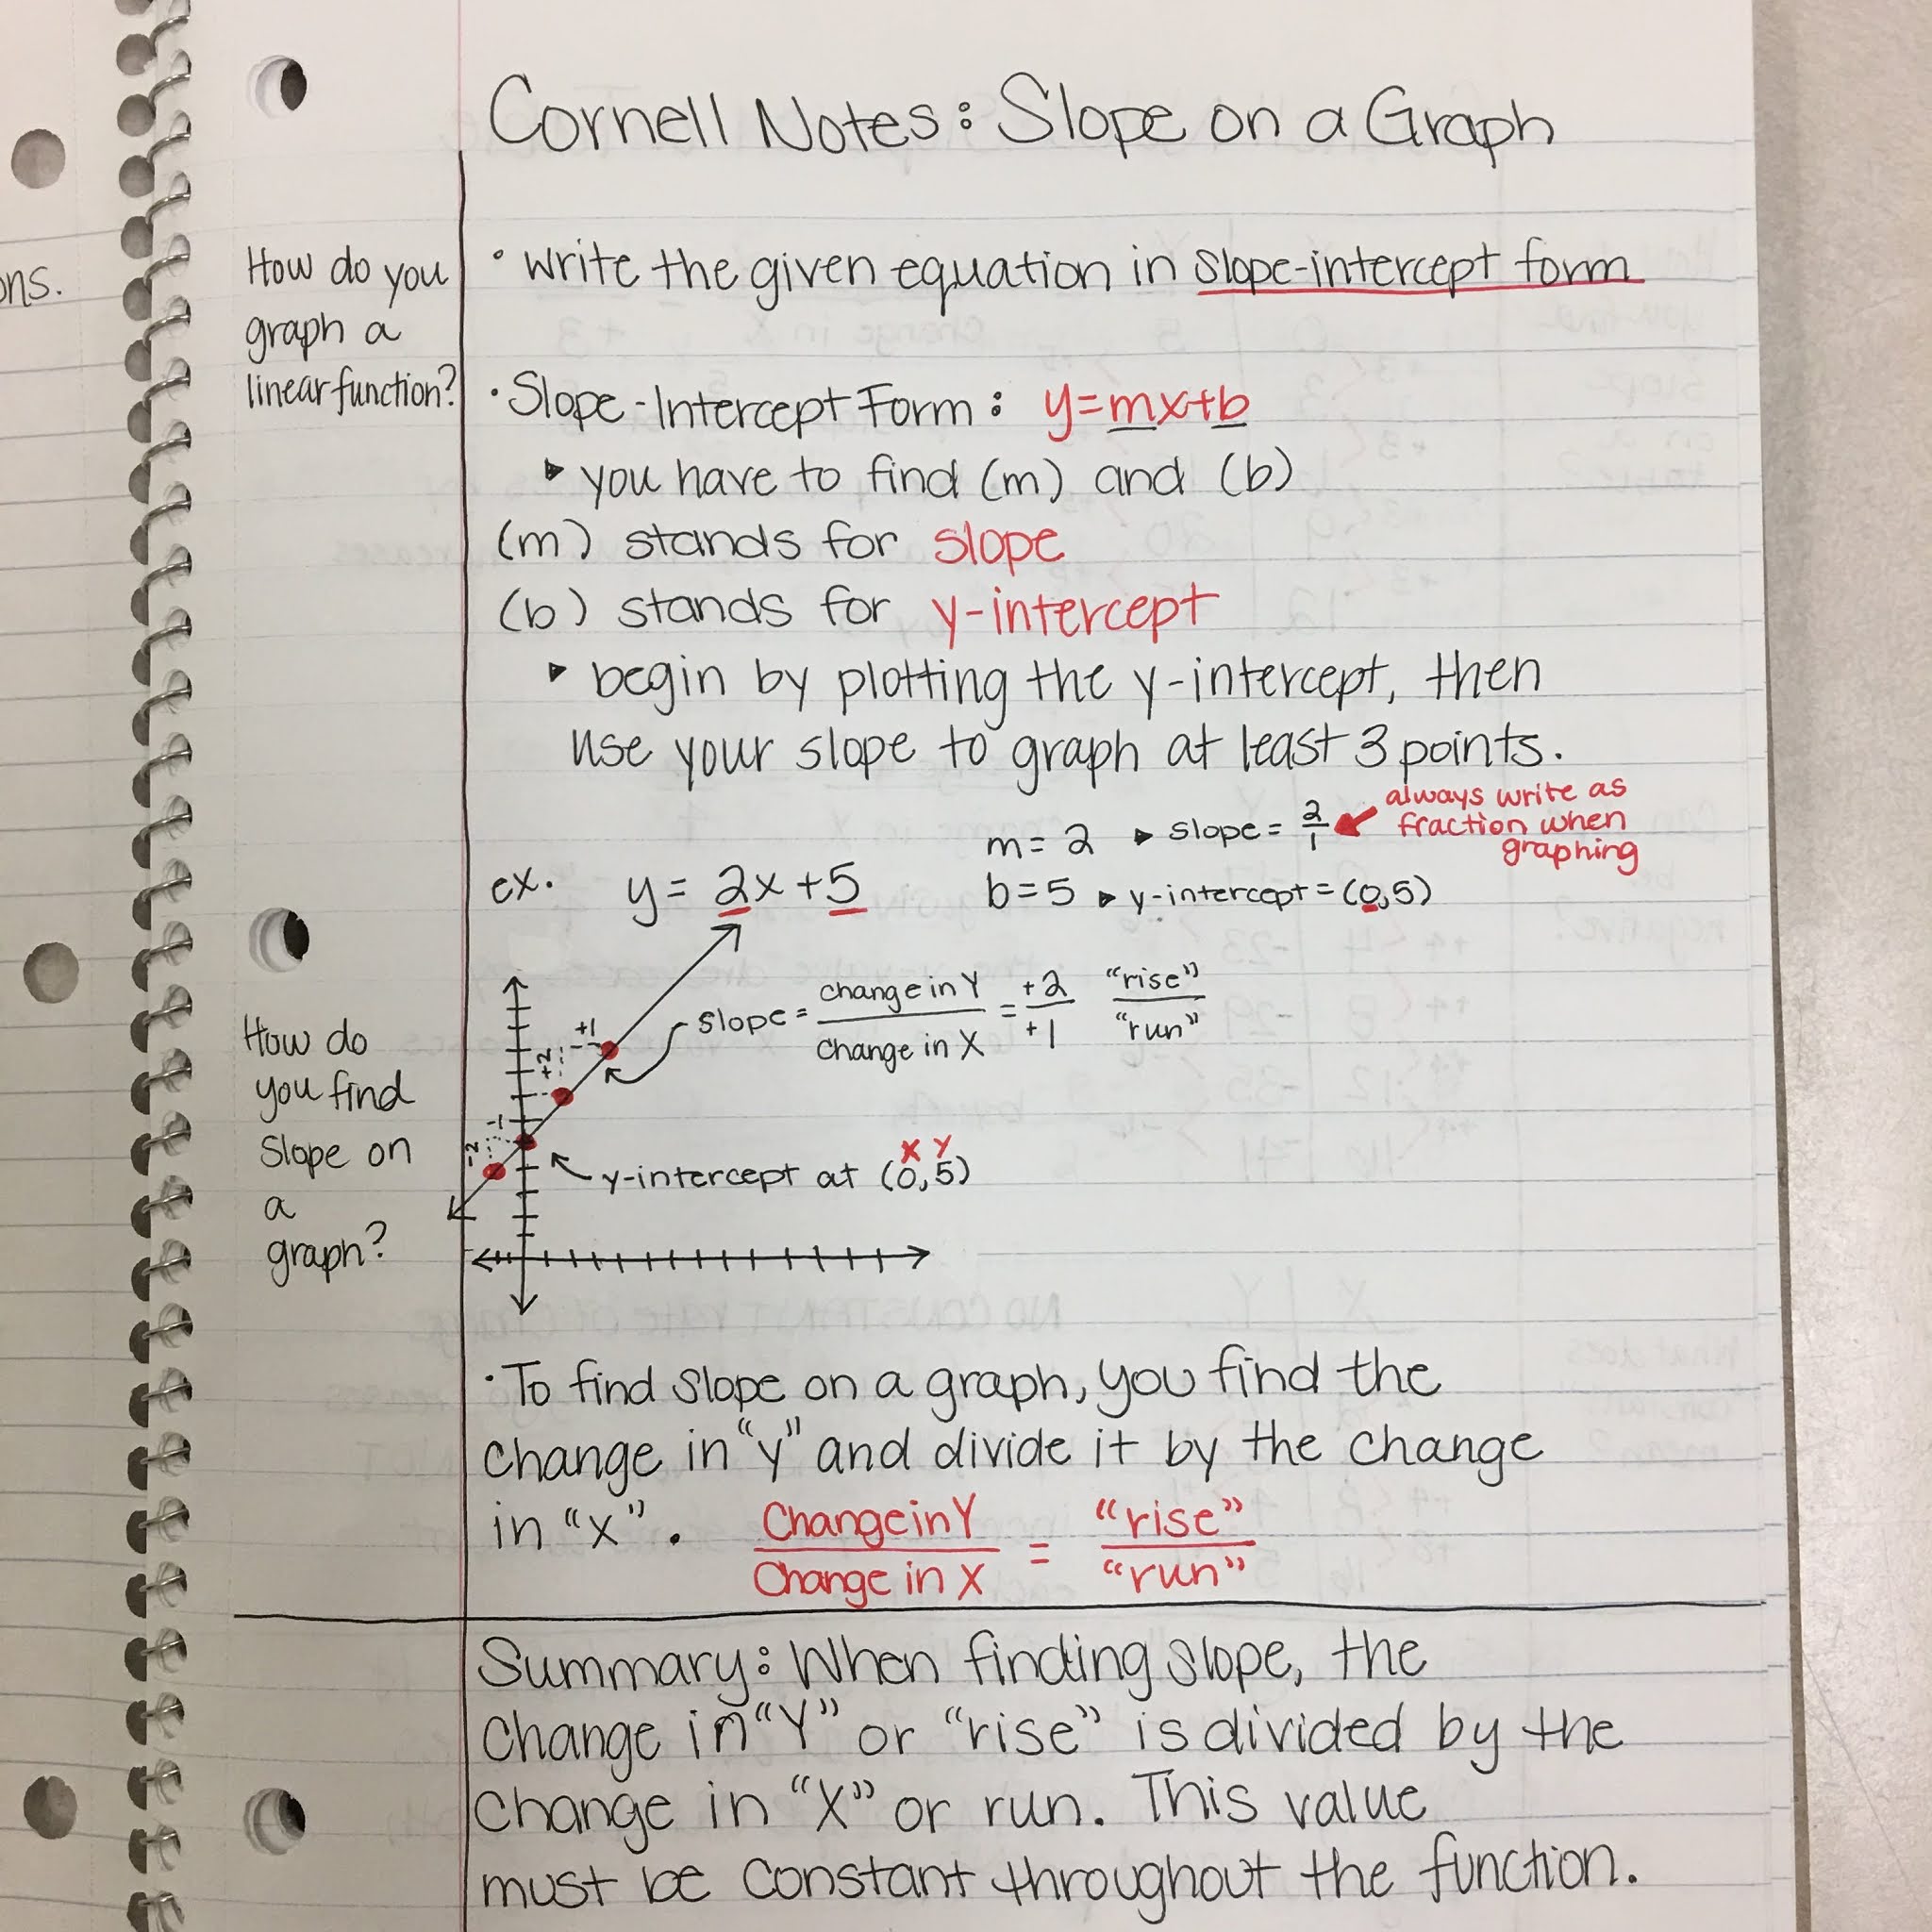 Cornell Notes: Slope on a Graph
ons.
How do you
graph a
linear function?
• write the given equation in slope-intercept form
• Slope-Intercept Form: y=mx+b
▸ you have to find (m) and (b)
(m) stands for slope
(b) stands for y-intercept
▸ begin by plotting the y-intercept, then
use your slope to graph at least 3 points.
m = 2 ▸ slope = 2/1
always write as
fraction when
graphing
ex. y = 2x + 5
b = 5 ▸ y-intercept = (0,5)
How do
you find
slope on
a
graph?
slope = change in Y / change in X = +2 / +1 "rise" / "run"
+1
+2
-1
-2
X Y
y-intercept at (0,5)
• To find slope on a graph, you find the
change in "y" and divide it by the change
in "x". Change in Y / Change in X = "rise" / "run"
Summary: When finding slope, the
change in "Y" or "rise" is divided by the
change in "X" or run. This value
must be constant throughout the function.